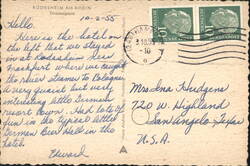 RÜDESHEIM AM RHEIN
10-2-55
Hello.
Here is the hotel on
the left that we stayed
in at Rüdesheim near
Frankfurt where we caught
the river steamer to Cologne.
A very quaint but very
interesting little German
resort town. Had lots of
fun in the typical little
German Beer Hall in the
hotel.
Edward
10
10
Mrs. Ina Hudgens
720 W. Highland
San Angelo, Texas
U.S.A.